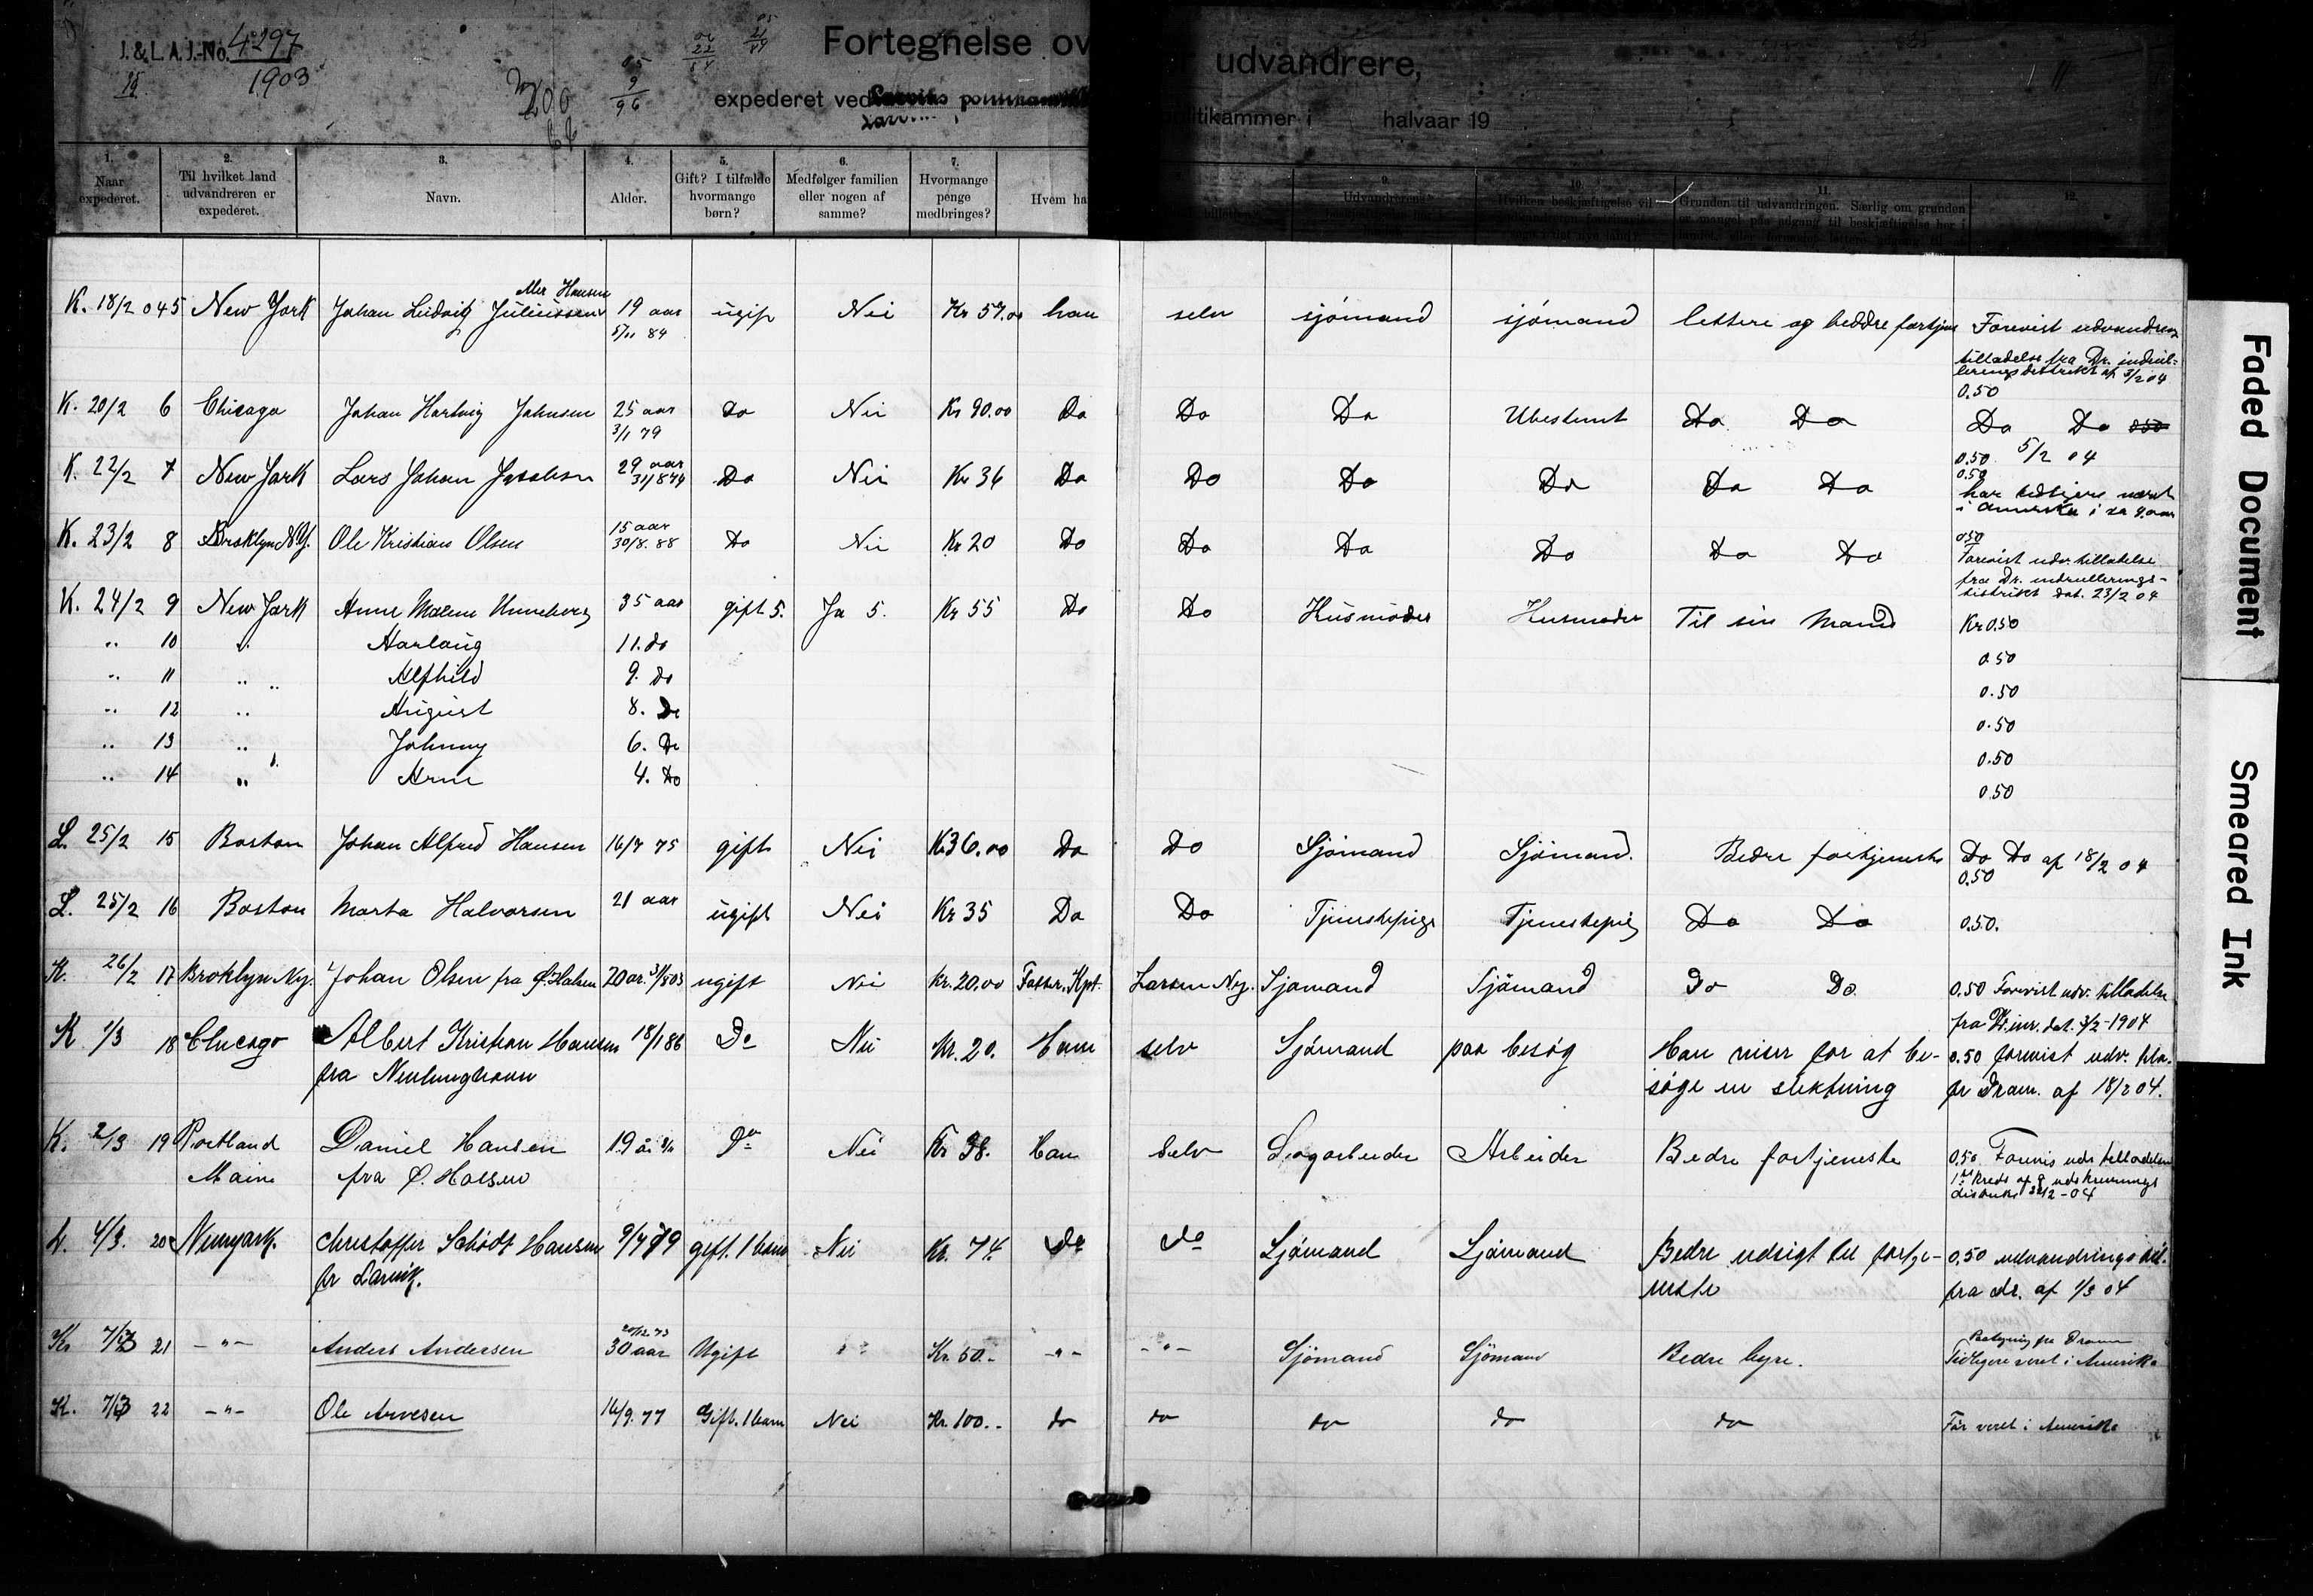 J. & L. A. J.-No. 4297
1903
Fortegnelse ov
r udvandrere,
expederet ved
politikammer i halvaar 19
11
1. Naar expederet.
2. Til hvilket land udvandreren er expederet.
3. Navn.
4. Alder.
5. Gift? I tilfælde hvormange børn?
6. Medfølger familien eller nogen af samme?
7. Hvormange penge medbringes?
Hvem ha
9. Udvandrerens
10. Hvilken beskjæftigelse vil
11. Grunden til udvandringen. Særlig om grunden er mangel paa adgang til beskjæftigelse her i
12.
K. 18/2 04 5 New York Johan Ludvig Juliussen eller Hansen 19 aar 5/11 84 ugift Nei Kr 57.00 han selv sjómand sjómand lettere og beddre fortjen Forevist udvandrings
tilladelse fra Dr. indrul-
leringsdistrikt af 3/2 04
0.50
K. 20/2 6 Chicago Johan Hartvig Johnsen 25 aar 3/1 79 Do Nei Kr 90.00 Do Do Do Ubestemt Do Do Do Do
0.50 5/2 04
K. 22/2 7 New York Lars Johan Jakobsen 29 aar 31/8 74 Do Nei Kr 36 Do Do Do Do Do Do 0.50
har tidligere været
i Amerika i ca 9 aar
K. 23/2 8 Broklyn N.Y. Ole Kristian Olsen 15 aar 30/8. 88 Do Nei Kr 20 Do Do Do Do Do Do 0.50
Forevist udv. tilladelse
fra Dr. indrullerings-
distrikt dat. 23/2 04
K. 24/2 9 New York Anne Malene Unneberg 35 aar gift 5. Ja 5. Kr 55 Do Do Husmoder Husmoder Til sin Mand Kr 0.50
" 10 " Aarlaug 11. do 0.50
" 11 " " Alfhild 9. Do 0.50
" 12 " August 8. Do 0.50
" 13 " Johnny 6. Do 0.50
" 14 " Arne 4. Do 0.50
L. 25/2 15 Boston Johan Alfred Hansen 16/7 75 gift Nei Kr 36.00 Do Do Sjömand Sjömand. Bedre fortjeneste Do Do af 18/2 04
0.50
L. 25/2 16 Boston Marta Halvorsen 21 aar ugift Nei Kr 35 Do Do Tjenestepige Tjenestepig Do Do 0.50.
K. 26/2 17 Broklyn Ny. Johan Olsen fra Ø. Halsen 20 ar. ugift Nei Kr. 20.00 Fatter. Kpt. Larsen Ny. Sjømand Sjømand Do Do 0.50 Forevist udv. tilladelse
fra Dr. inr. dat. 3/2-1904
K 1/3 18 Chicago Albert Kristian Hansen 18/1 86 Do Nei Kr. 20. Ham selv Sjömand paa besög Han reiser for at be- 0.50 forevist udv. tila.
fra Nevlunghavn söge en slektning fr Dram. af 18/2 04.
K. 2/3 19 Portland Daniel Hansen 19 år Do Nei Kr 38. Han Selv Sagarbeider Arbeider Bedre fortjeneste 0.50 Forevis udv tilladelse
Maine fra Ø. Halsen 1ste kreds af udskrivnings
distrikt -04
L. 4/3. 20 Newyork. Christoffer Schödt Hansen 9/7 79 gift. 1 barn Nei Kr. 74 Do Do Sjömand Sjömand Bedre udsigt til fortje- 0.50 udvandrings till.
fr Larvik. neste fra Dr. af 1/3 04
Kr 7/3 21 -"- Anders Andersen 20/12 73 30 aar Ugift Kr. 50.- -"- -"- Sjömand Sjömand Bedre hyre. Tidligere veret i Amerika
K. 7/3 22 -"- Ole Arvesen 14/9. 77 Gift. 1 barn Nei Kr. 100.- do do do do do Før veret i Amerika
Faded Document
Smeared Ink